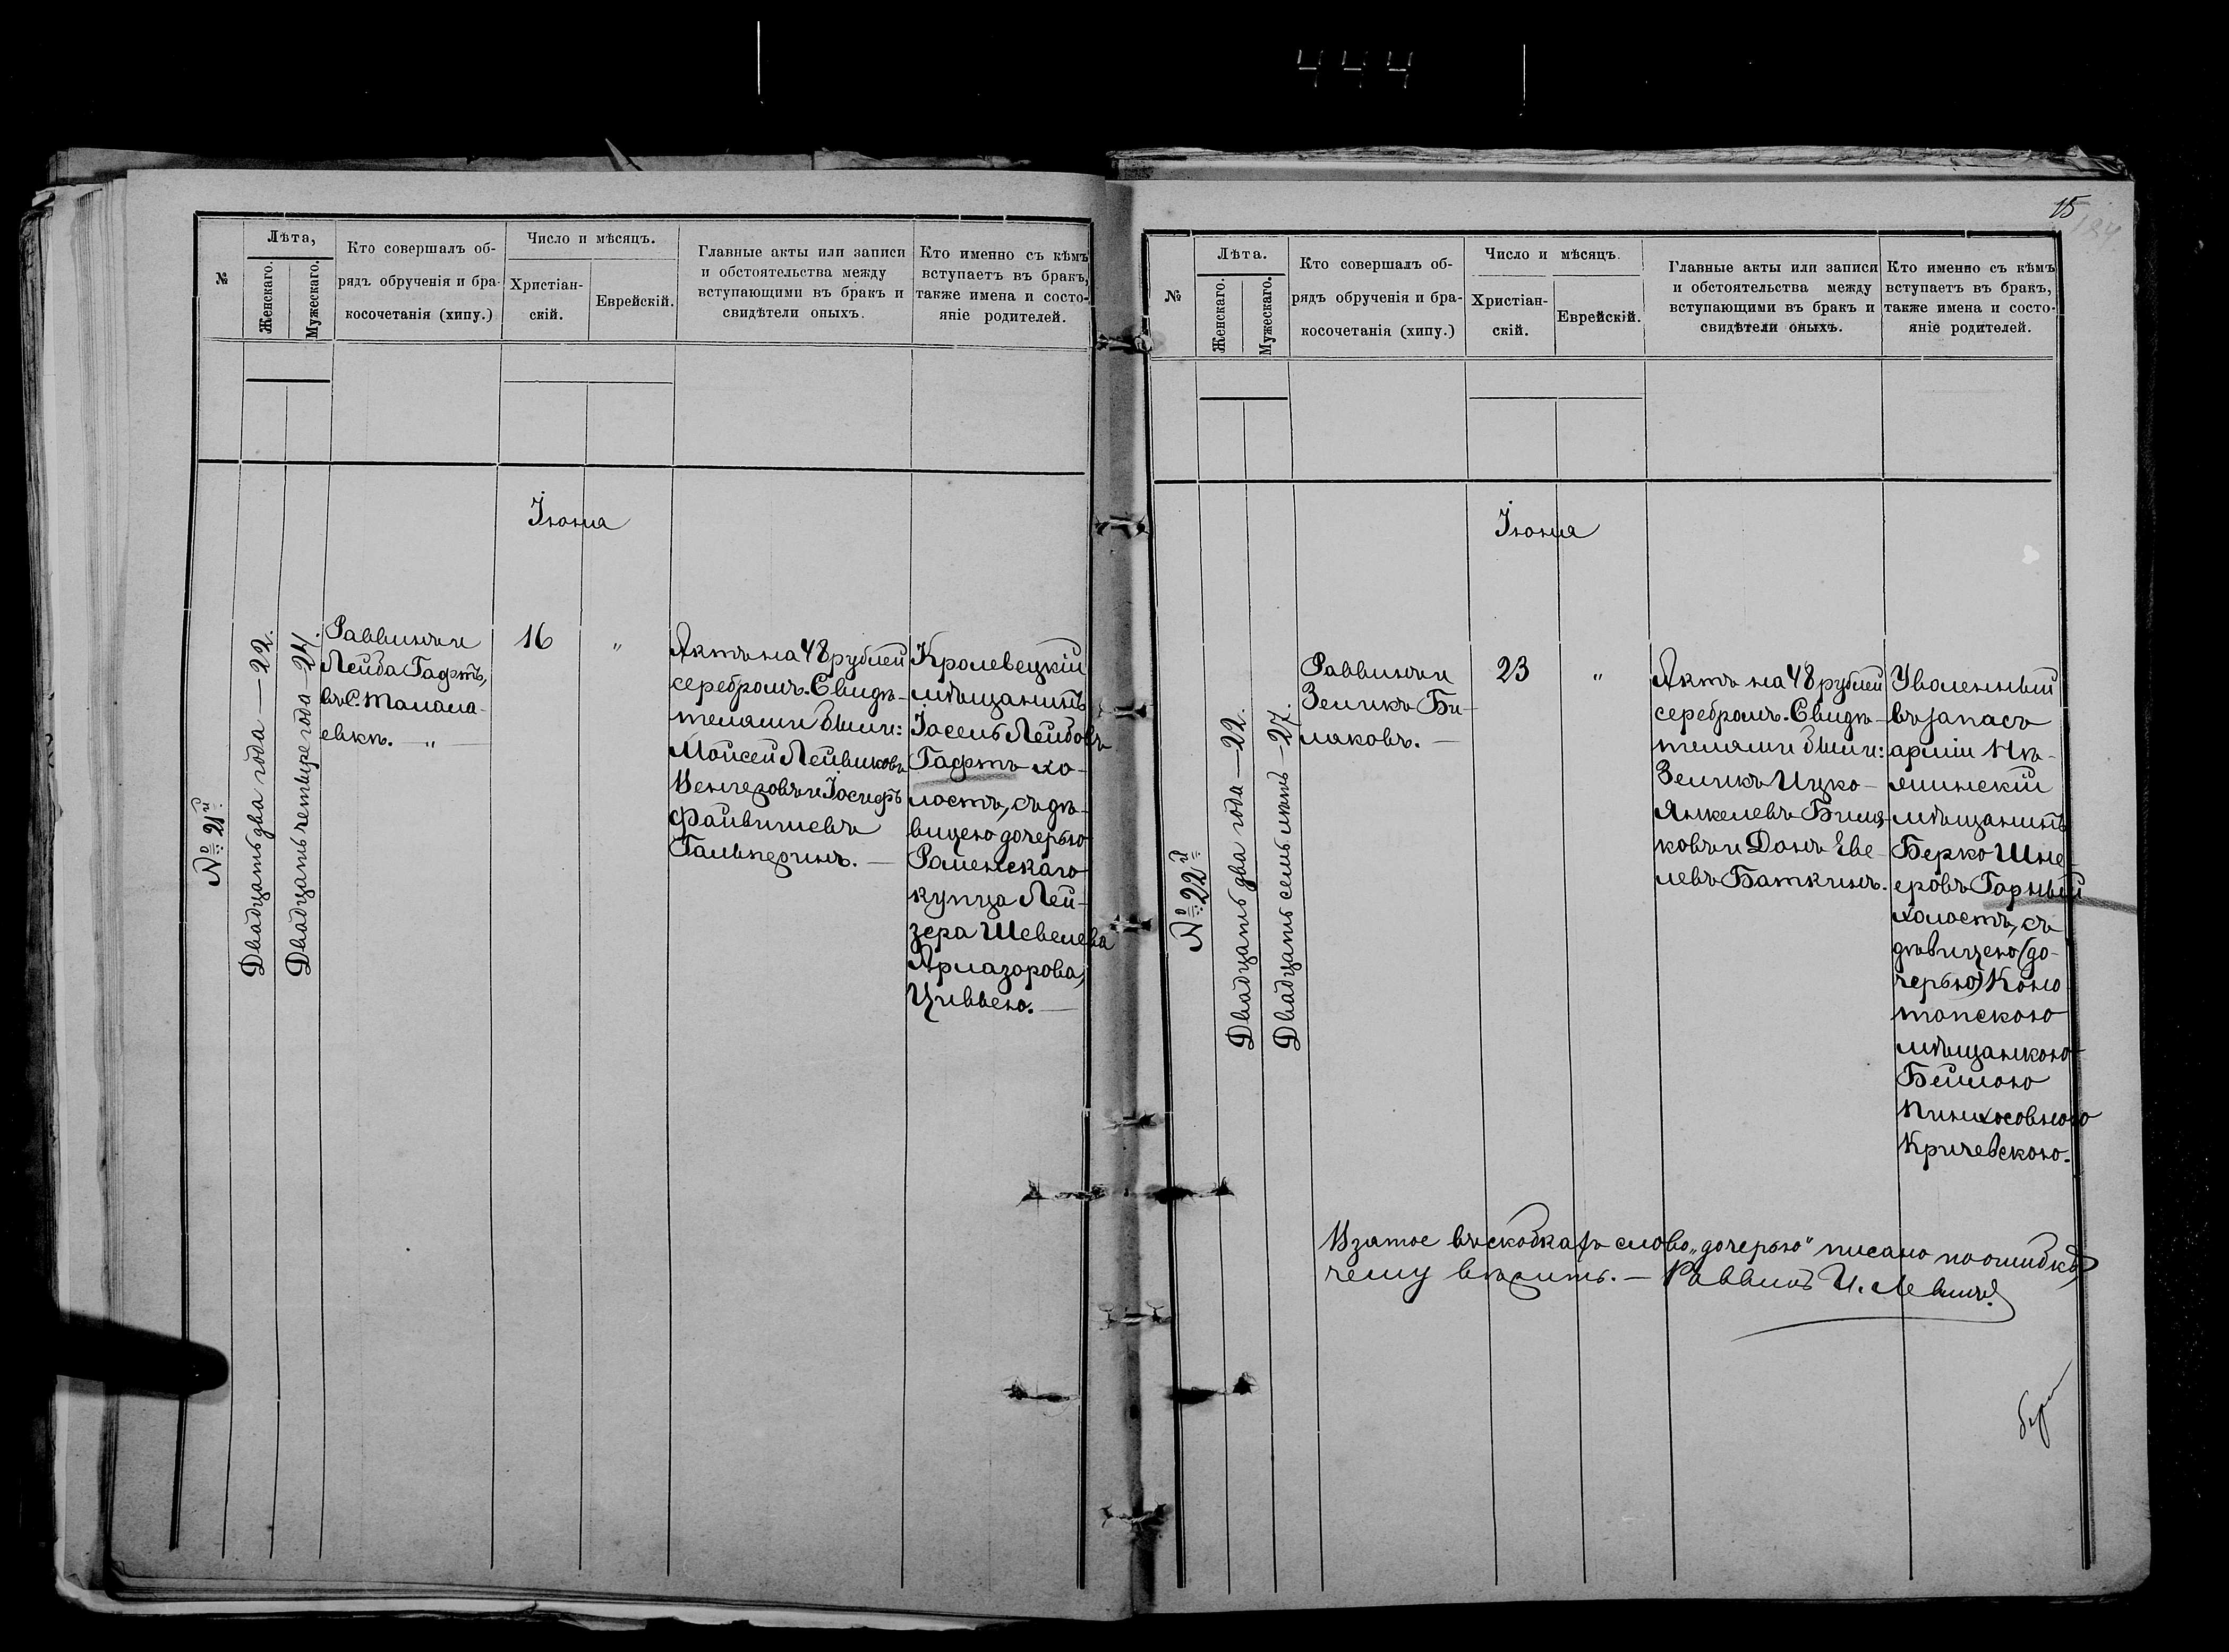 444
№
Лѣта,
Женскаго.
Мужескаго.
Кто совершалъ об-
рядъ обрученія и бра-
косочетанія (хипу.)
Число и мѣсяцъ.
Христіан-
скій.
Еврейскій.
Главные акты или записи
и обстоятельства между
вступающими въ бракъ и
свидѣтели оныхъ.
Кто именно съ кѣмъ
вступаетъ въ бракъ,
также имена и состо-
яніе родителей.
Іюня
№ 21й
Двадцать два года — 22.
Двадцать четыре года — 24.
Раввинъ и
Лейба Гафтъ,
въ С. Талала-
евкѣ. — „ —
16
„
Актъ на 48 рублей
серебромъ. Свидѣ-
телями были:
Мойсей Лейвиковъ
Венгеровъ и Іосифъ
Файвишевъ
Гальперинъ. —
Кролевецкій
мѣщанинъ
Іосель Лейбовъ
Гафтъ хо-
лостъ, съ дѣ-
вицею дочерью
Роменскаго
купца Лей-
зера Шевелева
Армазорова,
Цивьею. —
15
184
№
Лѣта.
Женскаго.
Мужескаго.
Кто совершалъ об-
рядъ обрученія и бра-
косочетанія (хипу.)
Число и мѣсяцъ.
Христіан-
скій.
Еврейскій.
Главные акты или записи
и обстоятельства между
вступающими въ бракъ и
свидѣтели оныхъ.
Кто именно съ кѣмъ
вступаетъ въ бракъ,
также имена и состо-
яніе родителей.
Іюня
№ 22й
Двадцать два года — 22.
Двадцать семь лѣтъ — 27.
Раввинъ и
Зеликъ Би-
ляковъ. —
23
„
Актъ на 48 рублей
серебромъ. Свидѣ-
телями были:
Зеликъ Ицко-
Янкелевъ Биля-
ковъ и Донъ Еве-
левъ Баткинъ.
Уволенный
въ запасъ
арміи Нѣ-
жинскій
мѣщанинъ
Берко Шне-
еровъ Горный
холостъ, съ
дѣвицею (до-
черью) Коно-
топскою
мѣщанкою
Бейлою
Пинхосовною
Кричевскою.
Взятое въ скобкахъ слово „дочерью" писано по ошибкѣ,
чему вѣрить. — Раввинъ И. Левинъ